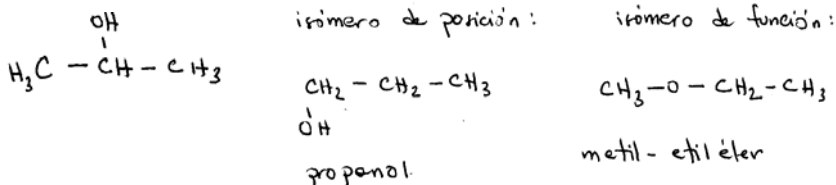 OH
H₃C - CH - CH₃
isómero de posición:
CH₂ - CH₂ - CH₃
OH
propanol.
isómero de función:
CH₃-O-CH₂-CH₃
metil-etil éter